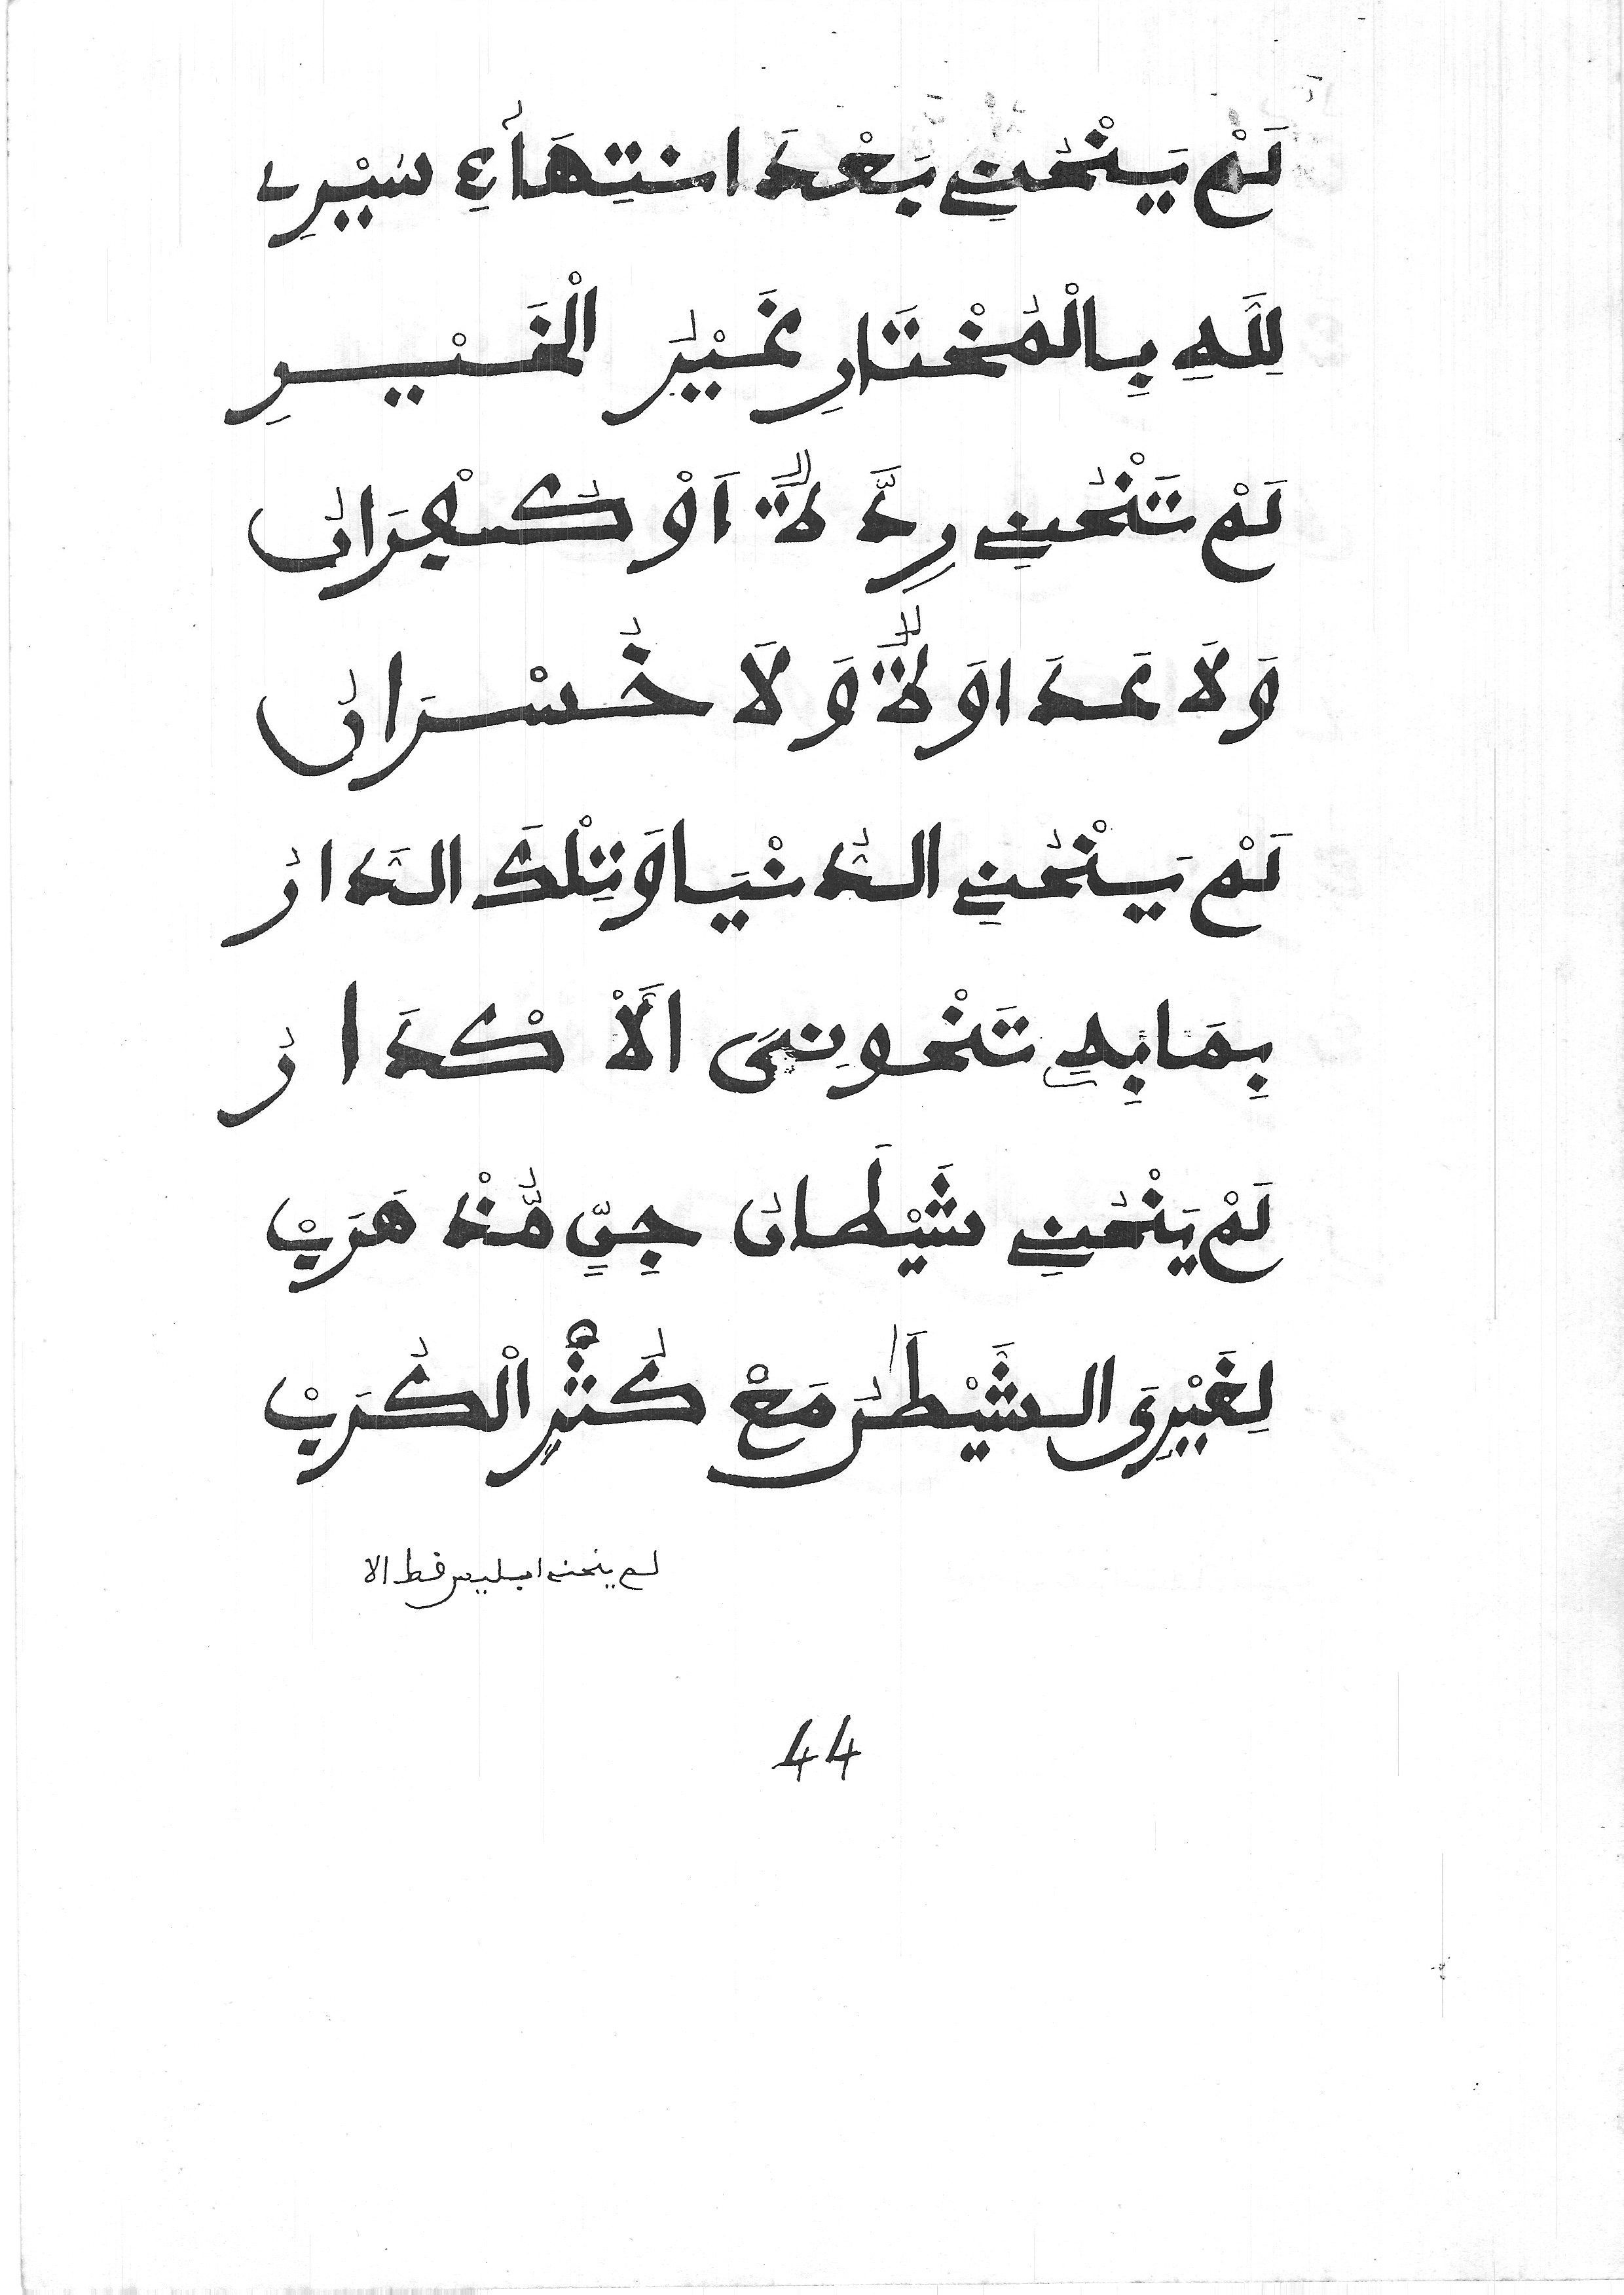 لَمْ يَنْحُنِي بَعْدَ انْتِهَاءِ سَيْرِي
لِلَّهِ بِالْمُخْتَارِ غَيْرُ الْخَيْرِ
لَمْ تَنْحُنِي رِدَّةٌ اَوْ كُفْرَانُ
وَلاَ عَدَاوَةٌ وَلاَ خُسْرَانُ
لَمْ يَنْحُنِي الدُّنْيَا وَتِلْكَ الدَّارُ
بِمَا بِهِ تَنْحُو نِىَ الْاَكْدَارُ
لَمْ يَنْحُنِي شَيْطَانُ جِنٍّ مُّنْذُ هَرَبْ
لِغَيْرِىَ الشَّيْطَٰنُ مَعْ كُثْرِ الْكُرَبْ
لم ينحني ابليس فقط الا
44